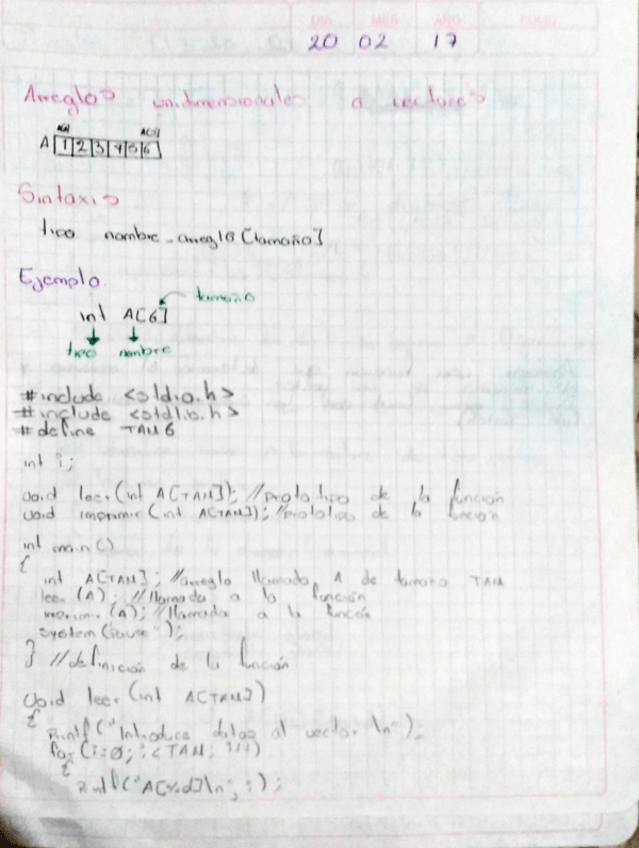 DIA MES AÑO FOLIO
20 02 17
Arreglos unidimensionales o vectores
A[0] A[5]
A 1 2 3 4 5 6
Sintaxis
tipo nombre_arreglo [tamaño]
Ejemplo
tamaño
int A[6]
tipo nombre
#include <stdio.h>
#include <stdlib.h>
#define TAM 6
int i;
void leer (int A[TAM]); //prototipo de la función
void imprimir (int A[TAM]); //prototipo de la función
int main()
{
int A[TAM]; //arreglo llamado A de tamaño TAM
leer (A); //llamada a la función
imprimir (A); //llamada a la función
system ("pause");
} //definición de la función
void leer (int A[TAM])
{
printf ("Introduce datos al vector \n");
for (i=0; i<TAM; i++)
{
printf ("A[%d]\n", i);